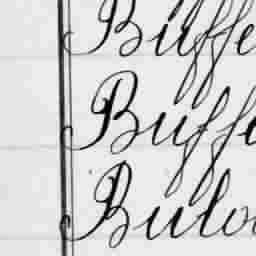 Buffe
Buffe
Bulo